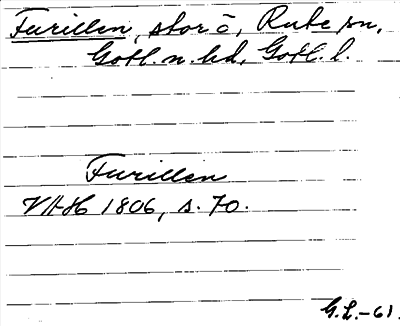 Furillen, stor ö, Rute sn,
Gotl. n. hd, Gotl. l.
Furillen
VAH 1806, s. 70.
G.L.-61.